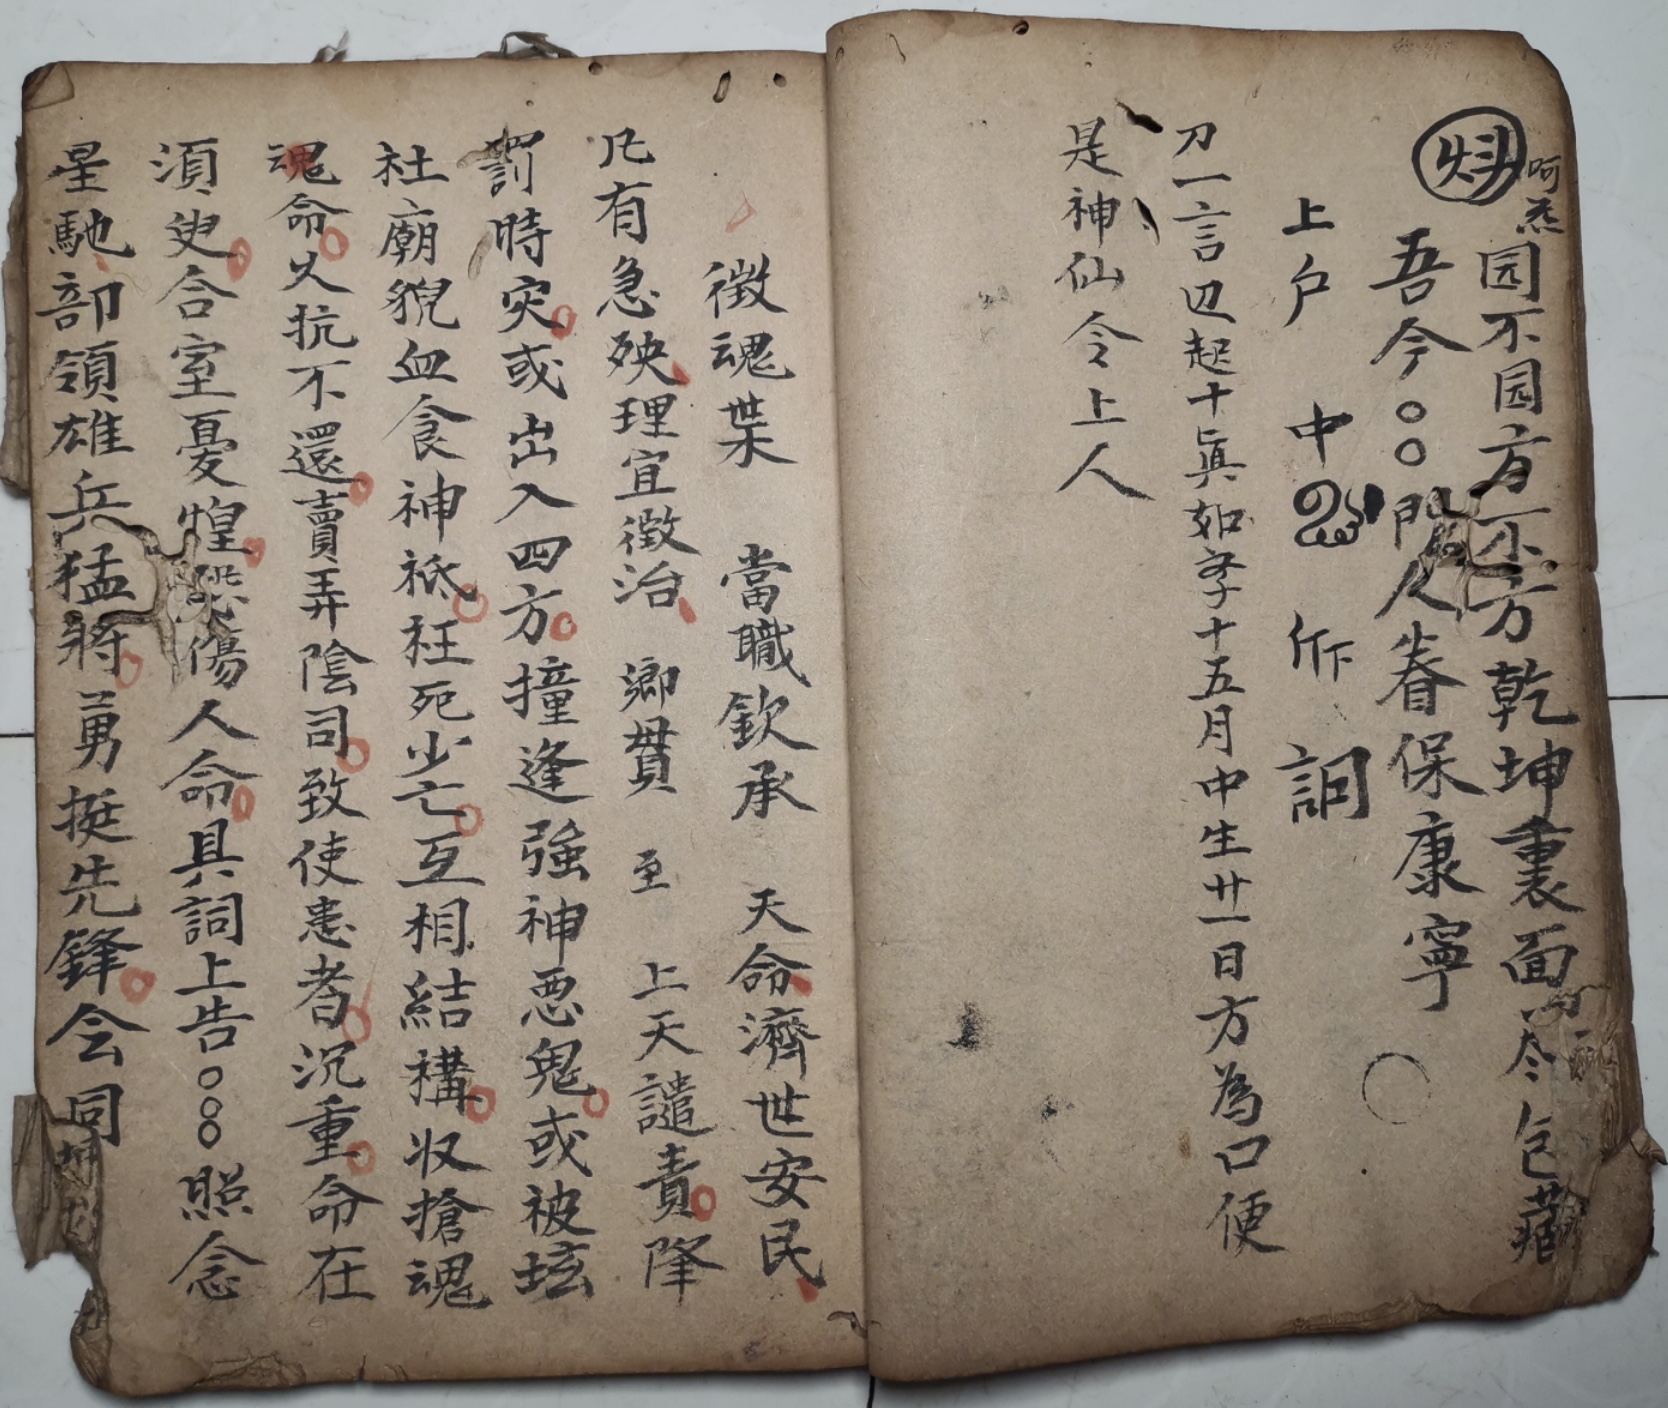 呵炁
园不园方不方乾坤裏面尽包藏
吾今○○門人眷保康寧
上户 中 斦 詞
刀一言辺起十真如字十五月中生廿一日方為口便
是神仙令上人
徴魂枼 當職欽承 天命濟世安民
凡有急殃理宜徴治 鄉貫 至 上天譴責降
罰時灾或出入四方撞逢強神悪鬼或被坛
社廟貌血食神祗枉死少亡互相結構收搶魂
魂命久抗不還賣弄陰司致使患者沉重命在
須臾合室憂惶恐傷人命具詞上告○○○照念
星馳部領雄兵猛將勇挺先鋒会同